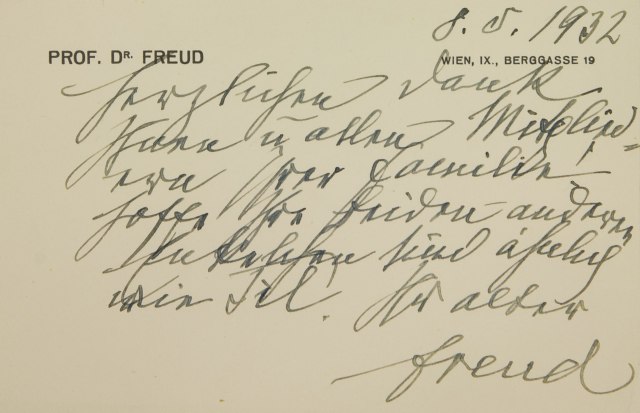 8. 5. 1932
PROF. DR. FREUD WIEN, IX., BERGGASSE 19
Herzlichen Dank
Ihnen u allen Mitglied=
ern Ihrer Familie!
hoffe Ihre beiden anderen
sind ähnlich
wie Ihr alter
Freud